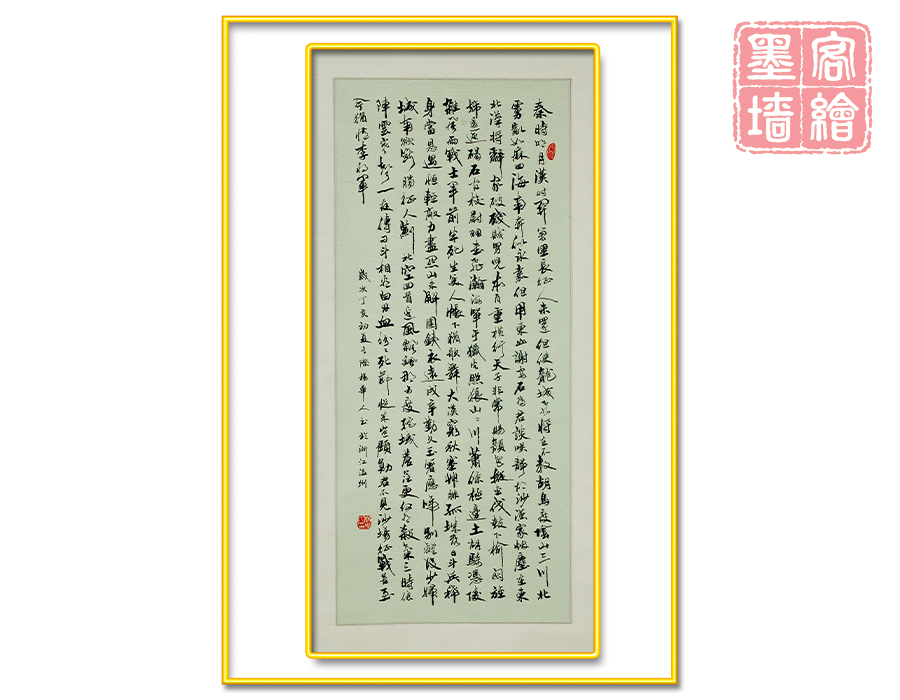 墨客
墙繪
秦時明月漢時關萬里長征人未還但使龍城飛將在不教胡馬度陰山三川北
虜亂如麻四海南奔似永嘉但用東山謝安石為君談咲靜胡沙漢家煙塵在東
北漢將辭家破殘賊男兒本自重橫行天子非常賜顏色摐金伐鼓下榆關旌
旆逶迤碣石間校尉羽書飛瀚海單于獵火照狼山〻川蕭條極邊土胡騎憑陵
雜風雨戰士軍前半死生美人帳下猶歌舞大漠窮秋塞草腓孤城落日斗兵稀
身當恩遇恒輕敵力盡關山未解圍鐵衣遠戍辛勤久玉箸應啼別離後少婦
城南欲斷腸征人薊北空回首邊風飄飄那可度絕域蒼茫更何有殺氣三時作
陣雲寒聲一夜傳刁斗相看白刃血紛〻死節從來豈顧勳君不見沙場征戰苦至
今猶憶李將軍
歲次丁亥初夏之際楊華人書於浙江溫州